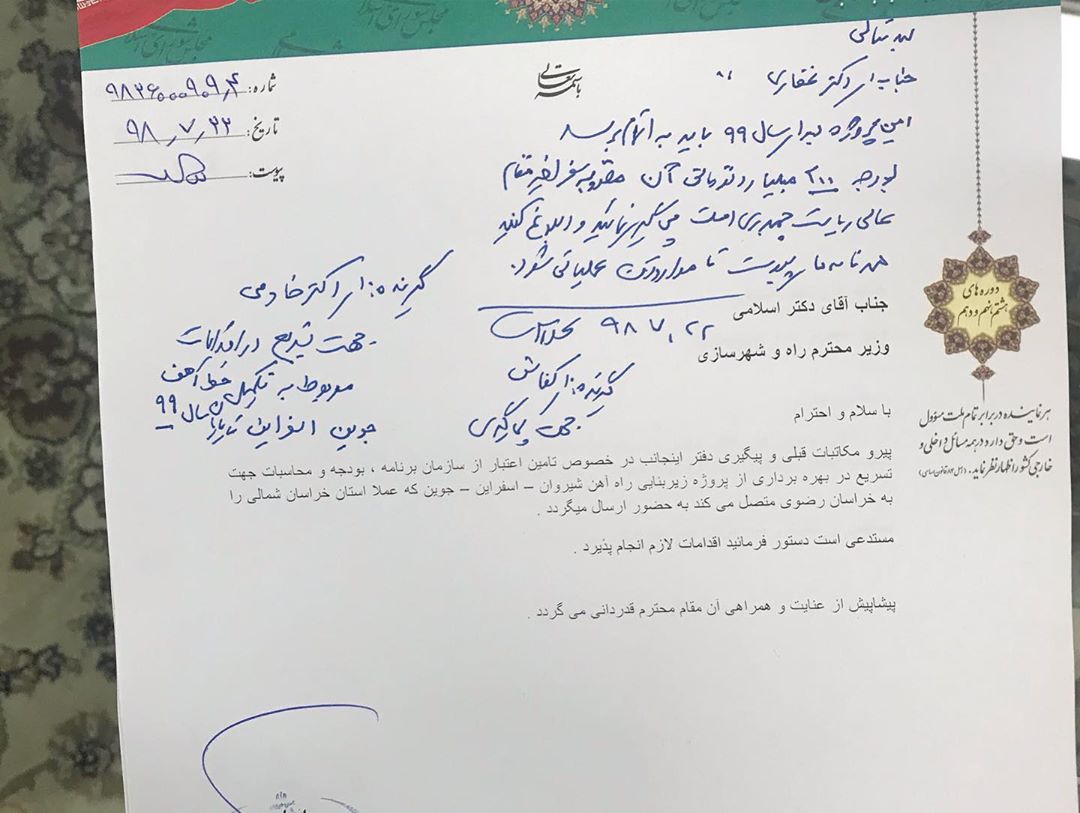 باسمه تعالی
شماره: ۹۸۳۶۰۰۰۹۰۹٫۴
تاریخ: ۹۸٫۷٫۲۲
پیوست:
جناب دکتر غفاری
این پروژه سال ۹۹ باید به اتمام برسد
بودجه ۲۰۰ میلیارد تومانی آن مصوبه سفر اخیر مقام
عالی ریاست جمهوری است پیگیری نمائید و ابلاغ کنند
همه نامه ها پیوست تا موارد عملیاتی شود.
۹۸٫۷٫۲۲
گیرنده: دکتر خادمی
جهت تسریع در اقدامات
مربوط به تکمیل خط آهن
جوین اسفراین سال ۹۹
گیرنده: کفاش
جهت پیگیری
جناب آقای دکتر اسلامی
وزیر محترم راه و شهرسازی
با سلام و احترام
پیرو مکاتبات قبلی و پیگیری دفتر اینجانب در خصوص تامین اعتبار از سازمان برنامه ، بودجه و محاسبات جهت
تسریع در بهره برداری از پروژه زیربنایی راه آهن شیروان – اسفراین – جوین که عملا استان خراسان شمالی را
به خراسان رضوی متصل می کند به حضور ارسال میگردد .
مستدعی است دستور فرمائید اقدامات لازم انجام پذیرد .
پیشاپیش از عنایت و همراهی آن مقام محترم قدردانی می گردد .
دوره های
هشتم، نهم و دهم
هر نماینده در برابر تمام ملت مسؤول
است و حق دارد در همه مسائل داخلی و
خارجی کشور اظهار نظر نماید.